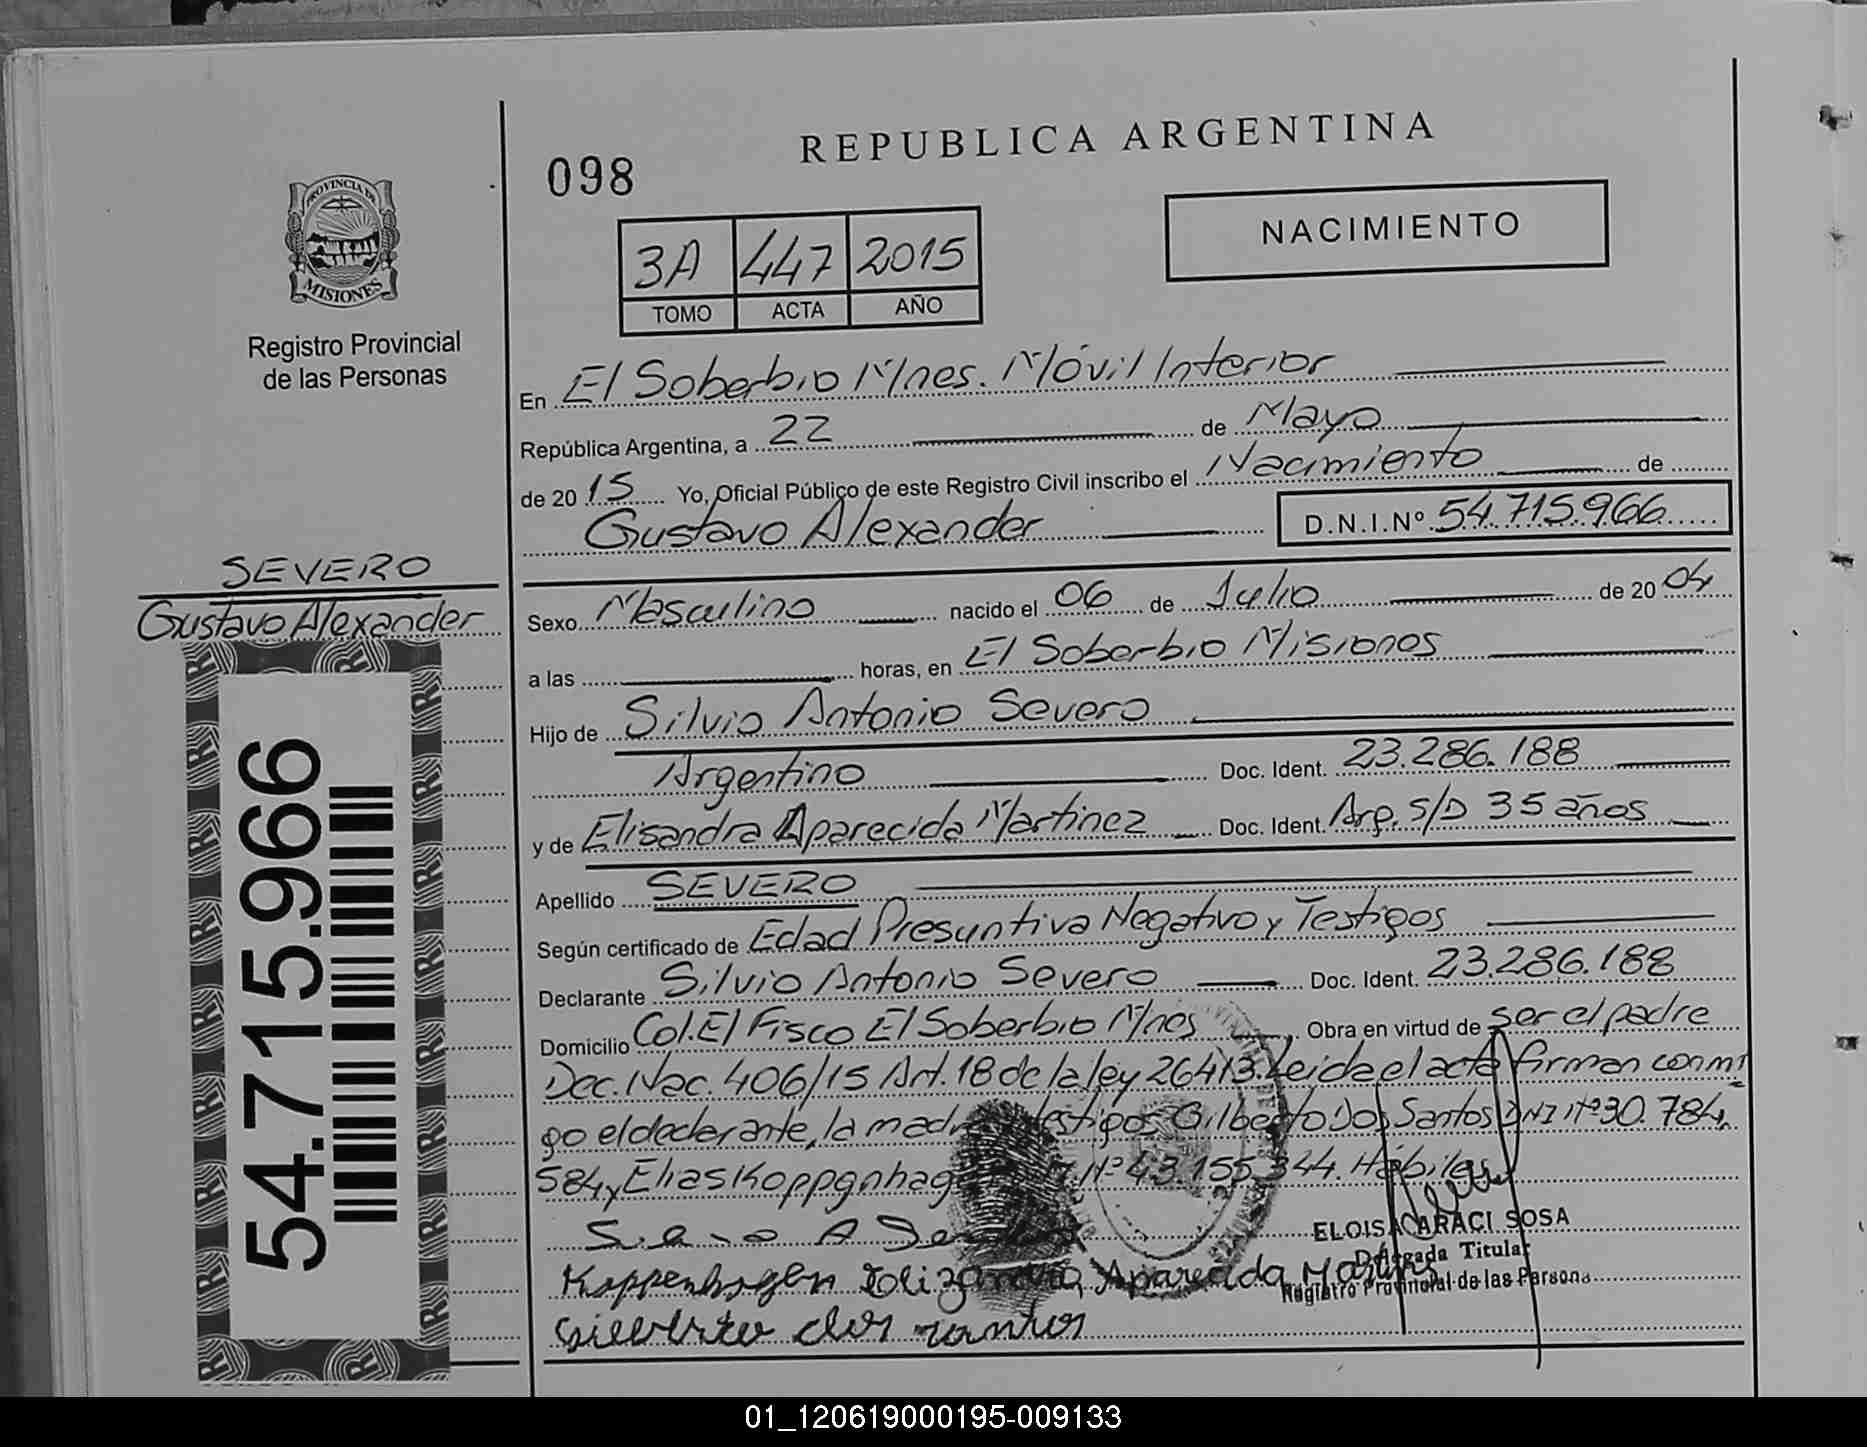 REPUBLICA ARGENTINA
098
NACIMIENTO
3A 447 2015
TOMO ACTA AÑO
PROVINCIA DE
MISIONES
Registro Provincial
de las Personas
En El Soberbio Mnes. Móvil Interior
República Argentina, a 22 de Mayo
de 2015 Yo, Oficial Público de este Registro Civil inscribo el Nacimiento de
Gustavo Alexander D.N.I.Nº 54.715.966
SEVERO
Gustavo Alexander
Sexo Masculino nacido el 06 de Julio de 2004
a las horas, en El Soberbio Misiones
Hijo de Silvio Antonio Severo
Argentino Doc. Ident. 23.286.188
y de Elisandra Aparecida Martinez Doc. Ident. Arg. S/D 35 años
Apellido SEVERO
Según certificado de Edad Presuntiva Negativo y Testigos
Declarante Silvio Antonio Severo Doc. Ident. 23.286.188
Domicilio Col. El Fisco El Soberbio Mnes Obra en virtud de ser el padre
Dec. Nac. 406/15 Art. 18 de la ley 26413. Leida el acta firman conmi
go el declarante, la madre testigos Gilberto Dos Santos DNI Nº 30.784.
584 y Elias Koppenhagen Nº 43.155.344. Hábiles
54.715.966
ELOISA CARACI SOSA
Delegada Titular
Registro Provincial de las Persona
Koppenhagen Aparecida
dos santos
01_120619000195-009133